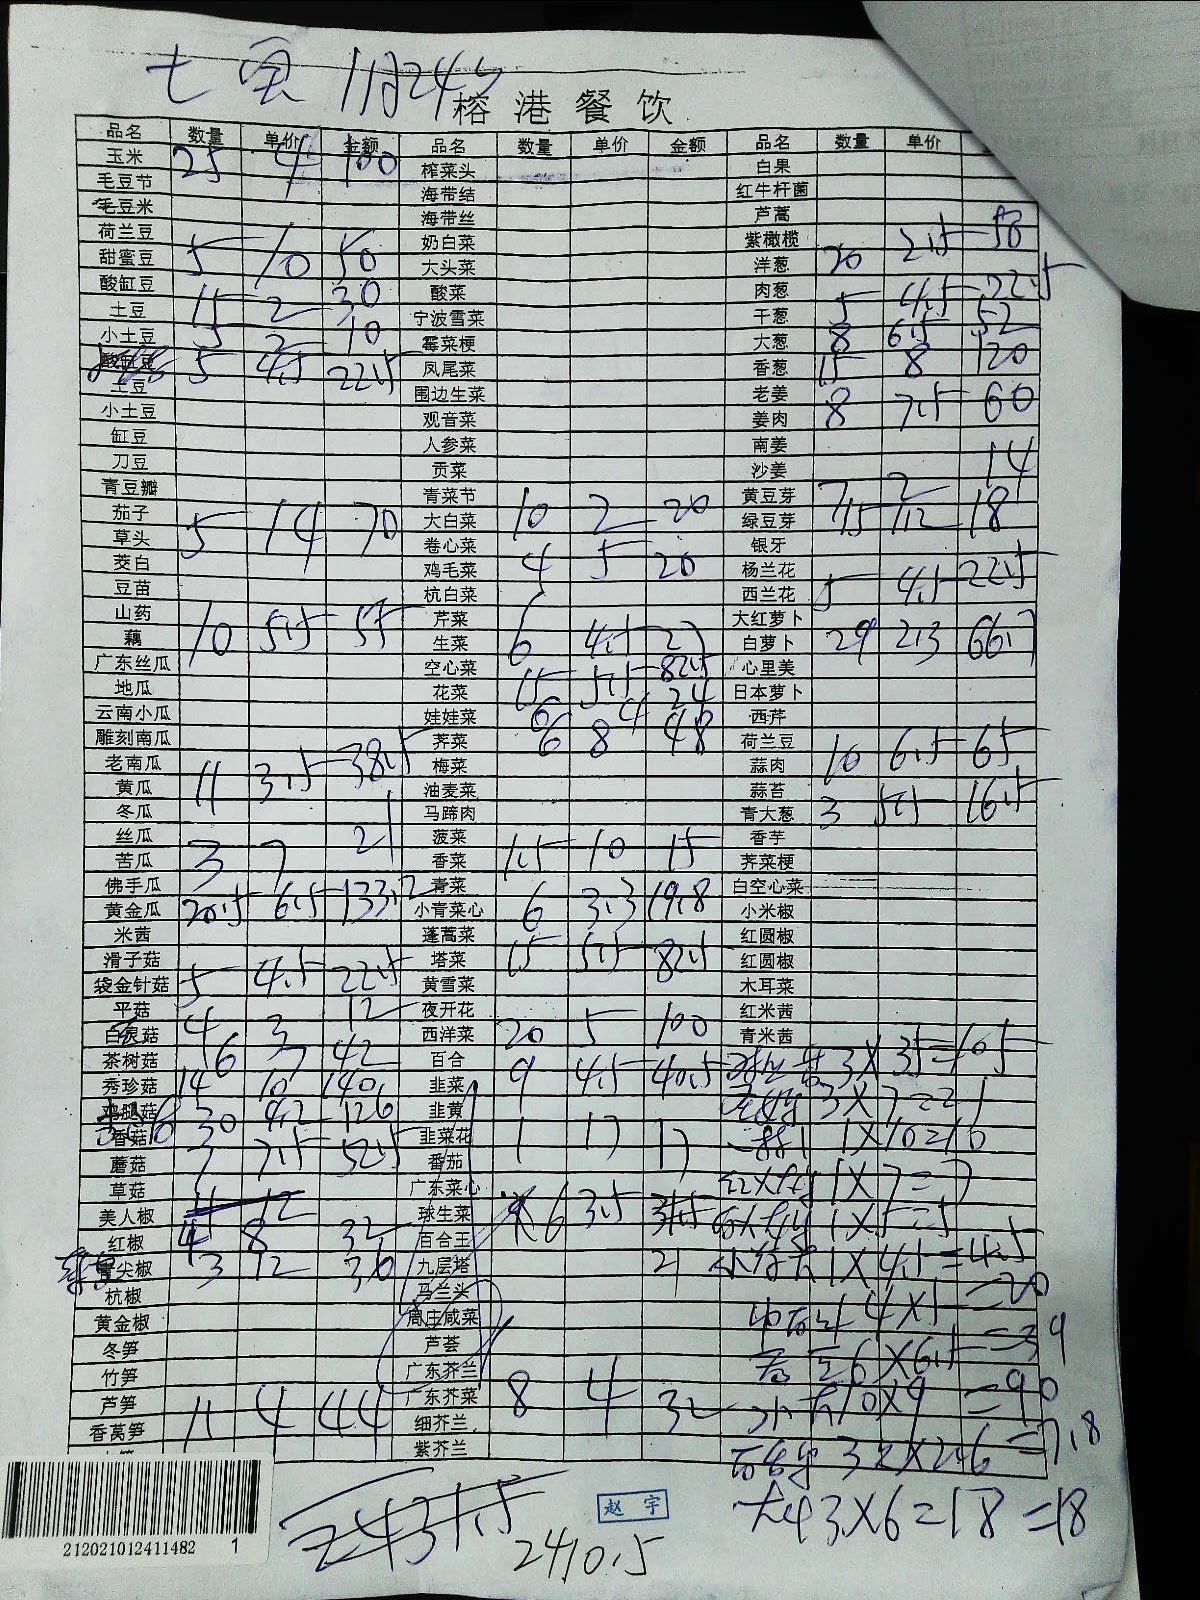 七 11月24日
榕港餐饮
品名 数量 单价 金额 品名 数量 单价 金额 品名 数量 单价
玉米 25 4 100 榨菜头 白果
毛豆节 海带结 红牛杆菌
毛豆米 海带丝 芦蒿
荷兰豆 奶白菜 紫橄榄
甜蜜豆 5 10 50 大头菜 洋葱 20 2.5 50
酸缸豆 酸菜 肉葱
土豆 15 2 30 宁波雪菜 干葱 5 4.5 22.5
小土豆 5 2 10 霉菜梗 大葱 8 6.5 52
酸缸豆 5 4.5 22.5 凤尾菜 香葱 15 8 120
土豆 围边生菜 老姜
小土豆 观音菜 姜肉 8 7.5 60
缸豆 人参菜 南姜
刀豆 贡菜 沙姜
青豆瓣 青菜节 黄豆芽 7 2 14
茄子 大白菜 10 2 20 绿豆芽 15 1.2 18
草头 5 14 70 卷心菜 银牙
茭白 鸡毛菜 4 5 20 杨兰花
豆苗 杭白菜 西兰花 5 4.5 22.5
山药 芹菜 大红萝卜
藕 10 5.5 55 生菜 6 4.5 27 白萝卜 29 2.3 66.7
广东丝瓜 空心菜 心里美
地瓜 花菜 15 5.5 82.5 日本萝卜
云南小瓜 娃娃菜 6 4 24 西芹
雕刻南瓜 荠菜 6 8 48 荷兰豆
老南瓜 梅菜 蒜肉 10 6.5 65
黄瓜 11 3.5 38.5 油麦菜 蒜苔
冬瓜 马蹄肉 青大葱 3 5.5 16.5
丝瓜 菠菜 香芋
苦瓜 3 7 21 香菜 1.5 10 15 荠菜梗
佛手瓜 青菜 白空心菜
黄金瓜 20.5 6.5 133.2 小青菜心 6 3.3 19.8 小米椒
米茜 蓬蒿菜 红圆椒
滑子菇 塔菜 15 5.5 82.5 红圆椒
袋金针菇 5 4.5 22.5 黄雪菜 木耳菜
平菇 夜开花 红米茜
白灵菇 4 3 12 西洋菜 20 5 100 青米茜
茶树菇 6 7 42 百合 3X35=105
秀珍菇 14 10 140 韭菜 9 4.5 40.5 3X7=21
鸡腿菇 30 4.2 126 韭黄 1X10=10
香菇 韭菜花 1 17 17
蘑菇 7 7.5 52.5 番茄 1X7=7
草菇 广东菜心
美人椒 球生菜 6 3.5 21 1X5=5
红椒 4 8 32 百合王 1X4.5=4.5
青尖椒 3 12 36 九层塔
杭椒 马兰头 4X5=20
黄金椒 周庄咸菜
冬笋 芦荟 6X6.5=39
竹笋 广东芥兰
芦笋 广东芥菜 8 4 32 10X9=90
香莴笋 11 4 44 细芥兰
紫芥兰 3X2.6=7.8
3X6=18=18
2431.5
2410.5
赵宇
212021012411482 1